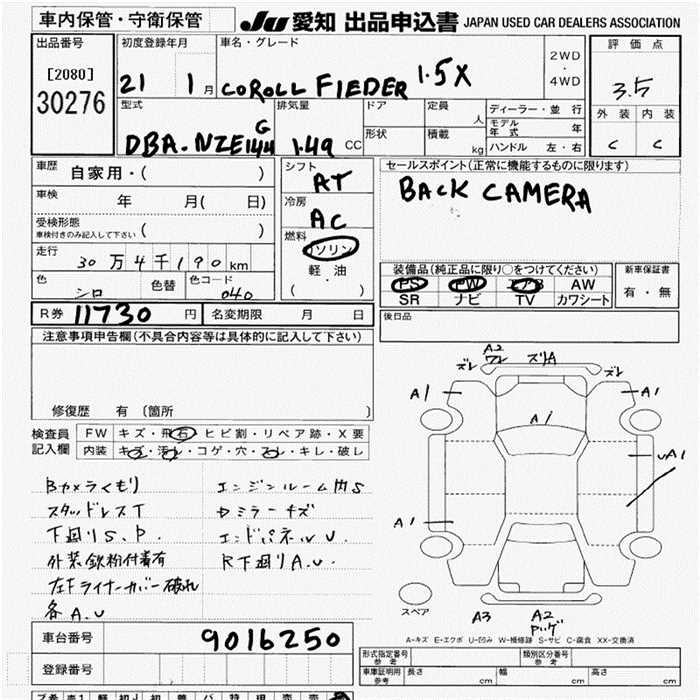 車内保管・守衛保管
JU 愛知 出品申込書 JAPAN USED CAR DEALERS ASSOCIATION
出品番号
[2080]
30276
初度登録年月
21 1月
車名・グレード
COROLL FIEDER 1.5X
2WD
・
4WD
評価点
3.5
外装 内装
C C
型式
DBA-NZE144G
排気量
1.49 CC
ドア
形状
定員
人
積載
kg
ディーラー・並行
モデル年式 年
ハンドル 左・右
車歴
自家用・( )
車検
年 月( 日)
受検形態
車検付きのみ記入して下さい
( )
走行
30万4千190km
色
シロ
色替
色コード
040
シフト
AT
冷房
AC
燃料
ガソリン
軽・油
( )
セールスポイント(正常に機能するものに限ります)
BACK CAMERA
装備品(純正品に限り○をつけてください)
PS PW エアB AW
SR ナビ TV カワシート
新車保証書
有・無
R券 11730 円
名変期限 月 日
後日品
注意事項申告欄(不具合内容等は具体的に記入して下さい)
修復歴 有 (箇所 )
検査員
記入欄
FW キズ・飛石・ヒビ割・リペア跡・X要
内装 キズ・汚れ・コゲ・穴・スレ・キレ・破レ
Bカメラくもり
スタッドレスT
下廻りS.P.
外装鉄粉付着有
左Fライナーカバー破れ
各A.U
エンジンルーム内S
Rミラーキズ
エンドパネルU.
R下廻りA.U.
A2
ワレ
ズレ
ズリA
ズレ
A1
A1
A1
UA1
A1
スペア
A3
A2
A-キズ E-エクボ U-凹み W-補修跡 S-サビ C-腐食 XX-交換済
車台番号
9016250
登録番号
形式指定番号
参考
類別区分番号
参考
車庫証明用
参考
長さ cm
幅 cm
高さ cm